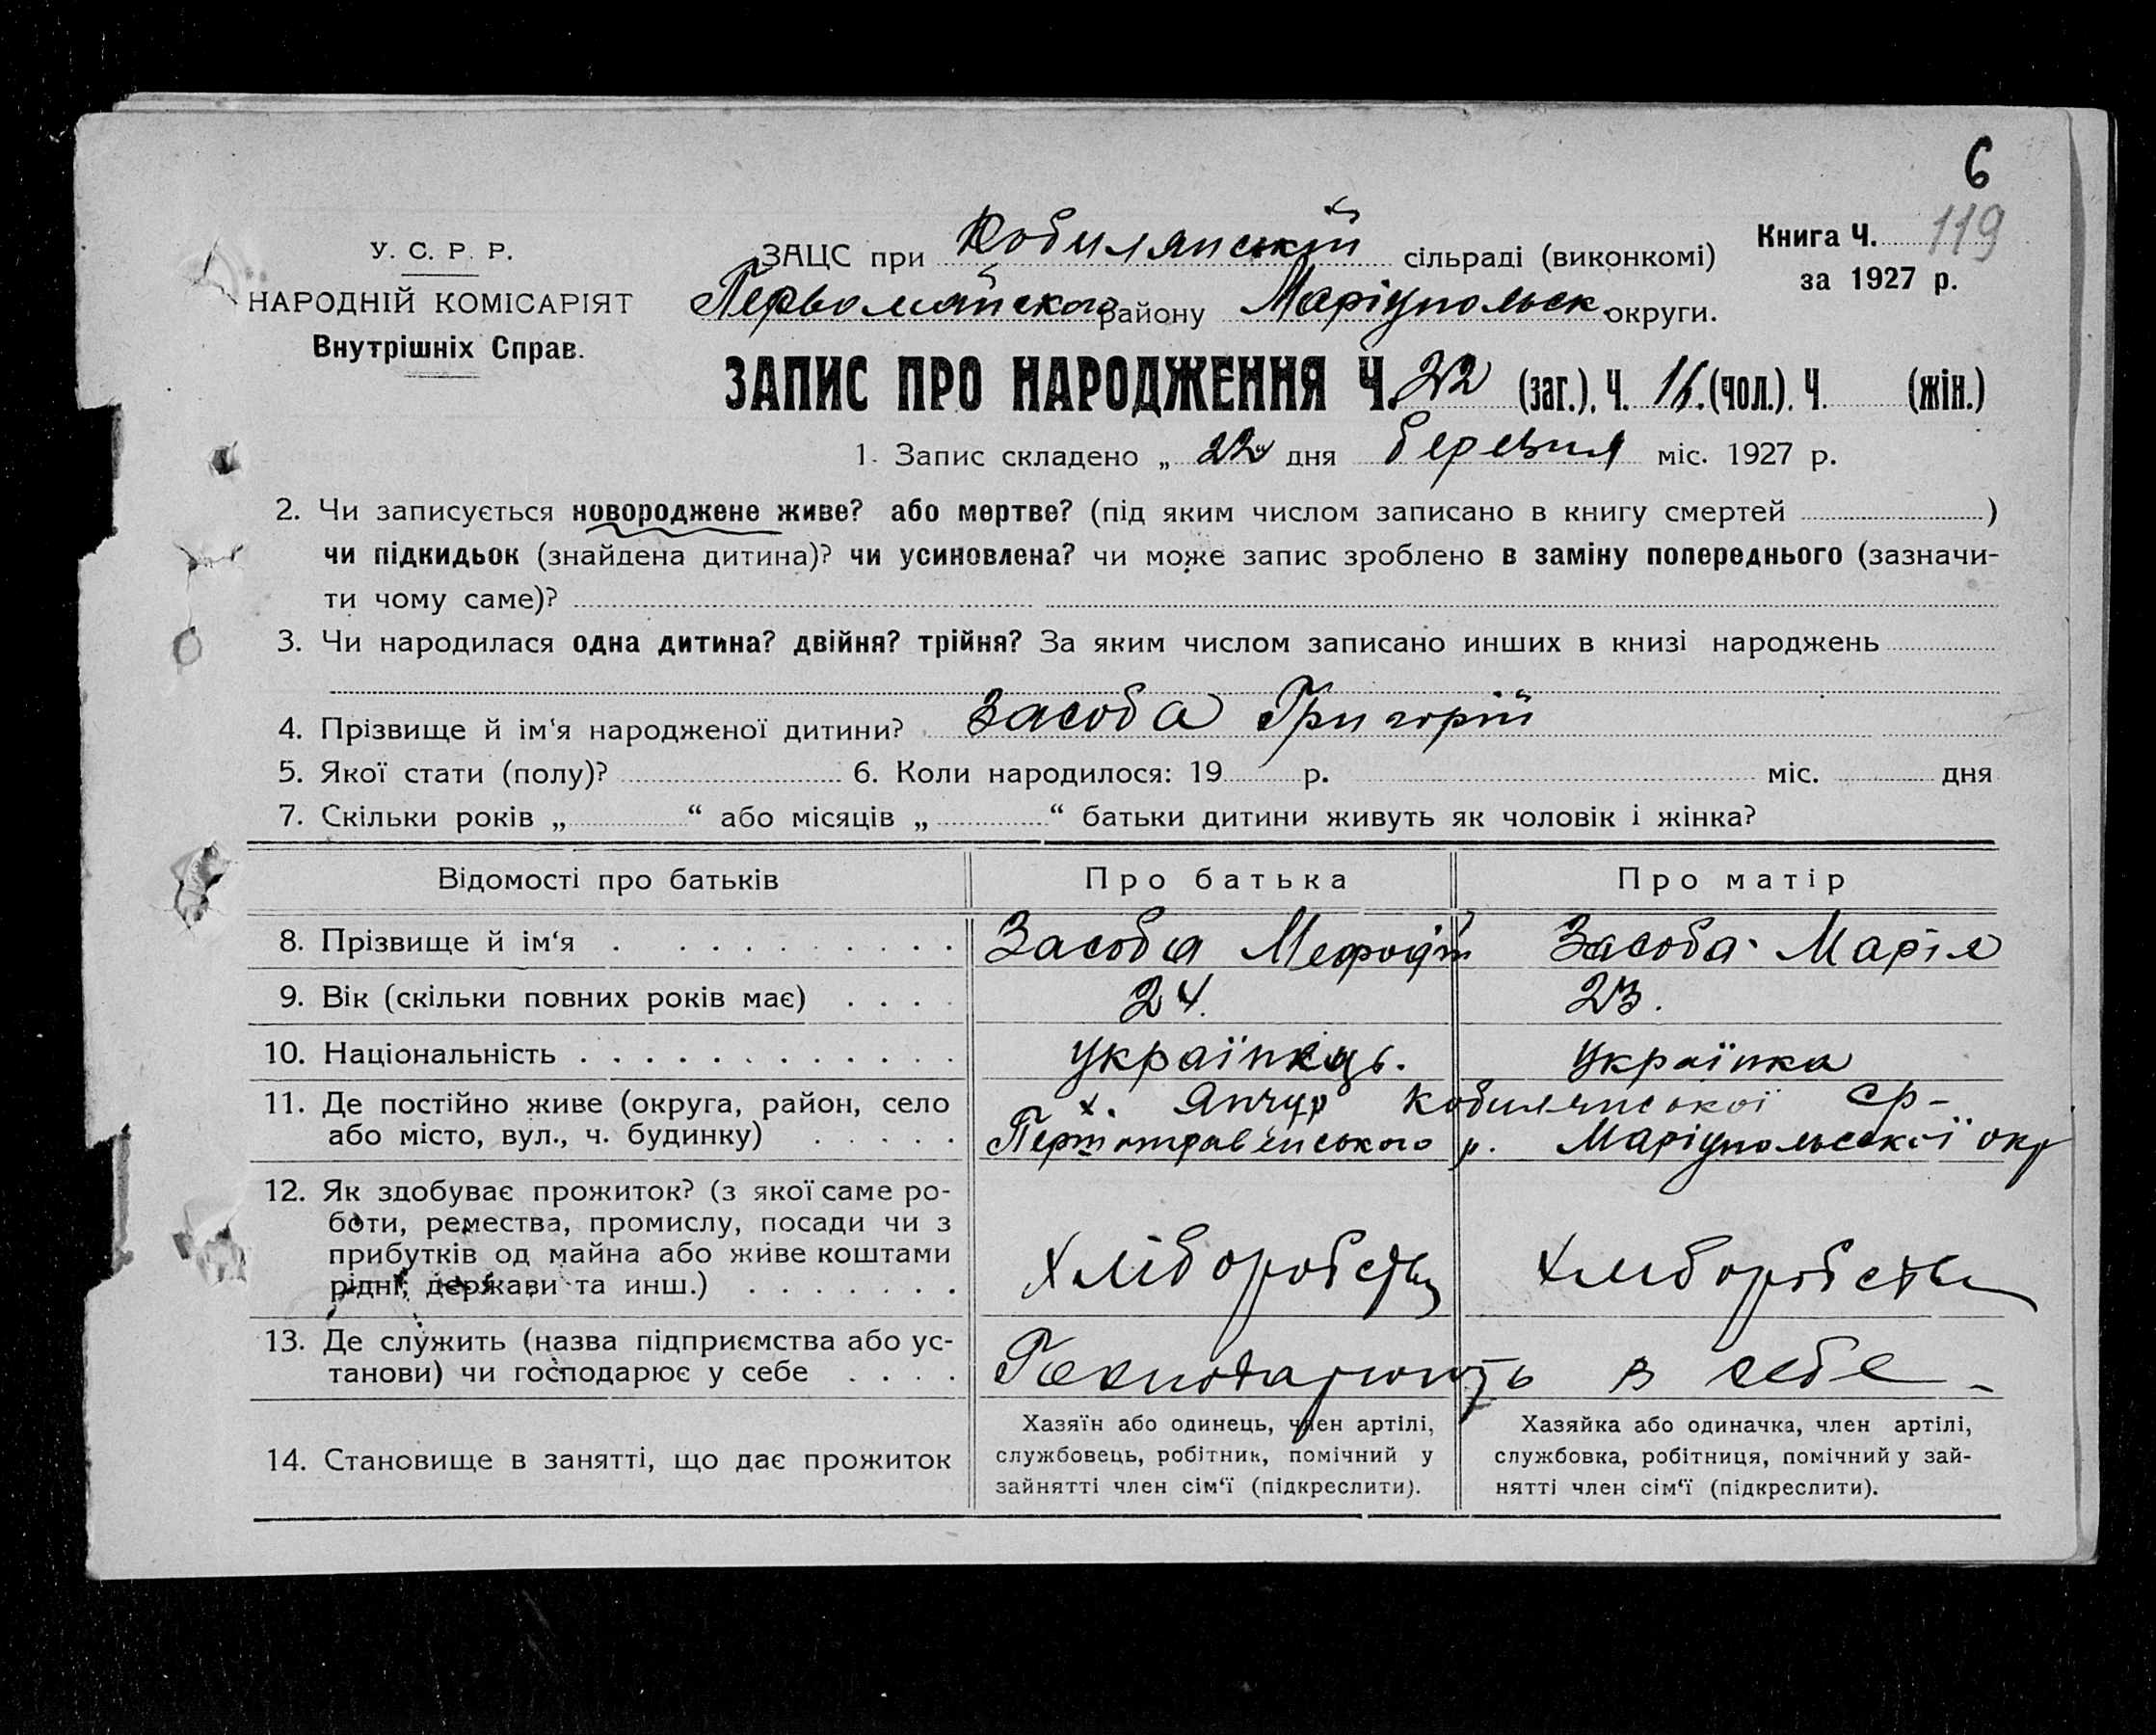 6
У. С. Р. Р.
НАРОДНІЙ КОМІСАРІЯТ
Внутрішніх Справ.
ЗАЦС при Кобилянскій сільраді (виконкомі)
Первомайского району Маріупольск округи.
Книга Ч. 119
за 1927 р.
ЗАПИС ПРО НАРОДЖЕННЯ Ч. 22 (заг.). Ч. 16. (чол.). Ч. (жін.)
1. Запис складено „ 22 дня березня міс. 1927 р.
2. Чи записується новороджене живе? або мертве? (під яким числом записано в книгу смертей )
чи підкидьок (знайдена дитина)? чи усиновлена? чи може запис зроблено в заміну попереднього (зазначи-
ти чому саме)?
3. Чи народилася одна дитина? двійня? трійня? За яким числом записано инших в книзі народжень
4. Прізвище й ім'я народженої дитини? Засоба Григорій
5. Якої стати (полу)? 6. Коли народилося: 19 р. міс. дня
7. Скільки років „ “ або місяців „ “ батьки дитини живуть як чоловік і жінка?
Відомості про батьків Про батька Про матір
8. Прізвище й ім‘я Засоба Мефодій Засоба Марія
9. Вік (скільки повних років має) 24. 23.
10. Національність українець. українка
11. Де постійно живе (округа, район, село х. Янчур Кобилянської ср-
або місто, вул., ч. будинку) р. Маріупольської окр
12. Як здобуває прожиток? (з якої саме ро-
боти, ремества, промислу, посади чи з
прибутків од майна або живе коштами
рідні, держави та инш.) Хліборобство Хліборобство
13. Де служить (назва підприємства або ус-
танови) чи господарює у себе Господарюють в себе -
14. Становище в занятті, що дає прожиток
Хазяїн або одинець, член артілі,
службовець, робітник, помічний у
зайнятті член сім‘ї (підкреслити).
Хазяйка або одиначка, член артілі,
службовка, робітниця, помічний у зай-
нятті член сім‘ї (підкреслити).